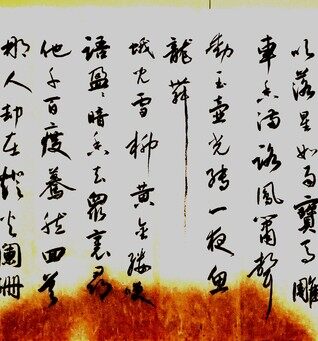 吹落星如雨寶馬雕
車香滿路風簫聲
動玉壺光轉一夜魚
龍舞
蛾兒雪柳黃金縷笑
語盈々暗香去眾裏尋
他千百度驀然回首
那人却在燈火闌珊